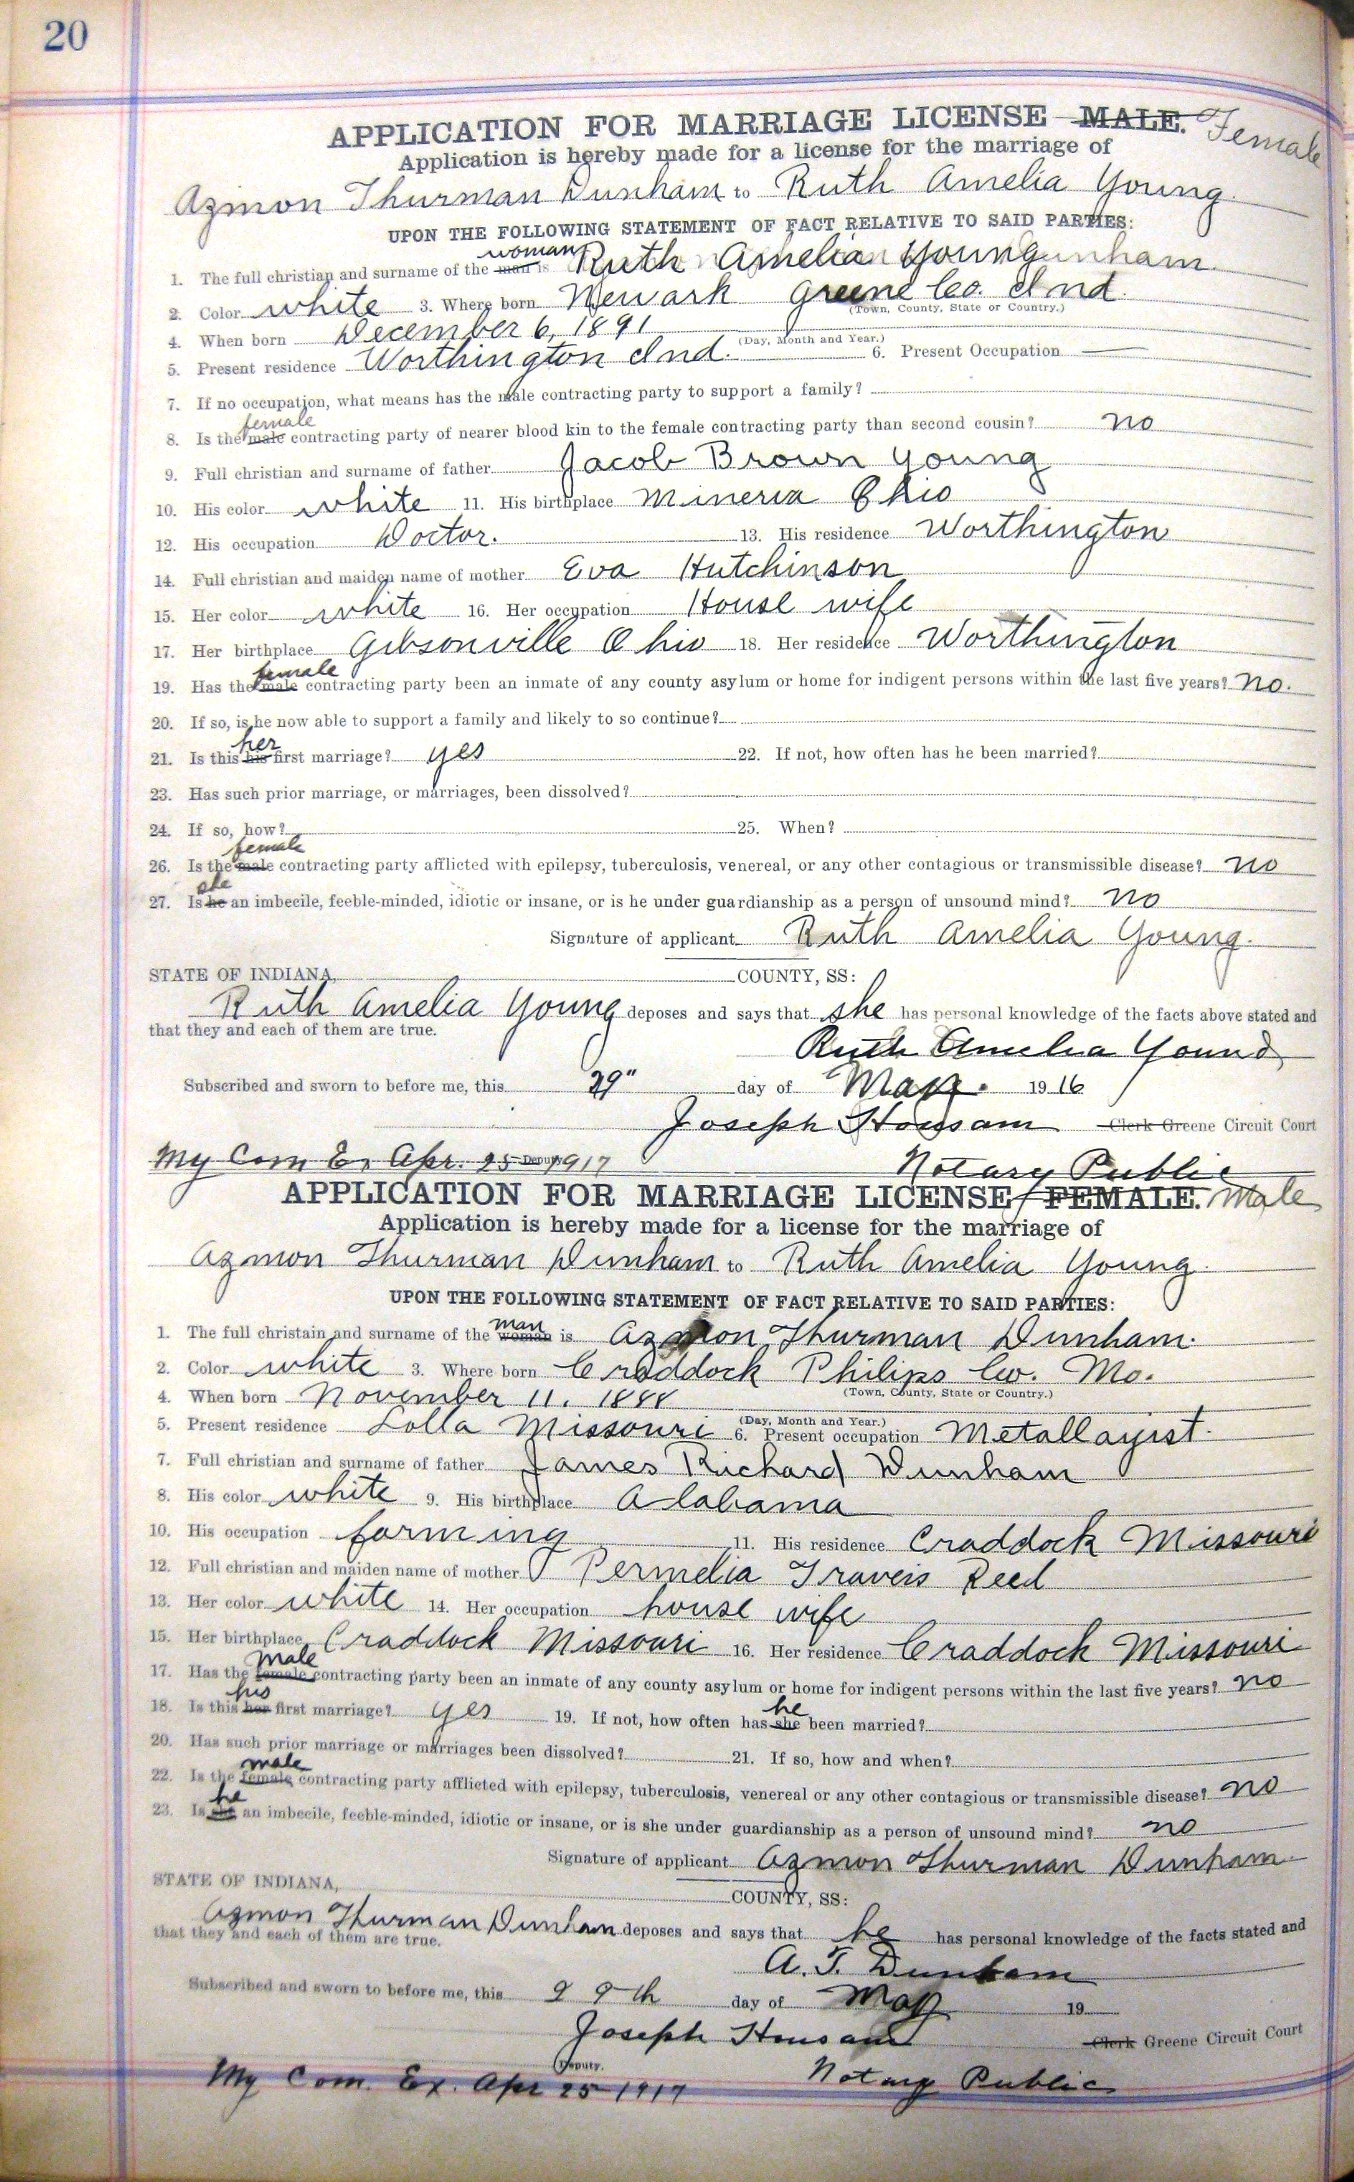 20
APPLICATION FOR MARRIAGE LICENSE MALE. Female
Application is hereby made for a license for the marriage of
Azmon Thurman Dunham to Ruth Amelia Young.
UPON THE FOLLOWING STATEMENT OF FACT RELATIVE TO SAID PARTIES:
woman
1. The full christian and surname of the man is Ruth Amelia Young
2. Color white 3. Where born Newark Greene Co. Ind.
(Town, County, State or Country.)
4. When born December 6, 1891
(Day, Month and Year.)
5. Present residence Worthington Ind. 6. Present Occupation —
7. If no occupation, what means has the male contracting party to support a family?
female
8. Is the male contracting party of nearer blood kin to the female contracting party than second cousin? no
9. Full christian and surname of father Jacob Brown Young
10. His color white 11. His birthplace Mineria Ohio
12. His occupation Doctor. 13. His residence Worthington
14. Full christian and maiden name of mother Eva Hutchinson
15. Her color white 16. Her occupation House wife
17. Her birthplace Gibsonville Ohio 18. Her residence Worthington
female
19. Has the male contracting party been an inmate of any county asylum or home for indigent persons within the last five years? no.
20. If so, is he now able to support a family and likely to so continue?
her
21. Is this his first marriage? yes 22. If not, how often has he been married?
23. Has such prior marriage, or marriages, been dissolved?
24. If so, how? 25. When?
female
26. Is the male contracting party afflicted with epilepsy, tuberculosis, venereal, or any other contagious or transmissible disease? no
she
27. Is he an imbecile, feeble-minded, idiotic or insane, or is he under guardianship as a person of unsound mind? no
Signature of applicant Ruth Amelia Young.
STATE OF INDIANA, COUNTY, SS:
Ruth Amelia Young deposes and says that she has personal knowledge of the facts above stated and
that they and each of them are true.
Ruth Amelia Young
Subscribed and sworn to before me, this 29" day of May. 1916
Joseph Housam Clerk Greene Circuit Court
My Com Ex Apr. 25 1917 Deputy Notary Public
APPLICATION FOR MARRIAGE LICENSE FEMALE. Male
Application is hereby made for a license for the marriage of
Azmon Thurman Dunham to Ruth Amelia Young.
UPON THE FOLLOWING STATEMENT OF FACT RELATIVE TO SAID PARTIES:
man
1. The full christain and surname of the woman is Azmon Thurman Dunham.
2. Color white 3. Where born Craddock Philips Co. Mo.
(Town, County, State or Country.)
4. When born November 11. 1888
(Day, Month and Year.)
5. Present residence Lolla Missouri 6. Present occupation Metallagist.
7. Full christian and surname of father James Richard Dunham
8. His color white 9. His birthplace Alabama
10. His occupation farming 11. His residence Craddock Missouri
12. Full christian and maiden name of mother Permelia Traveis Reed
13. Her color white 14. Her occupation house wife
15. Her birthplace Craddock Missouri 16. Her residence Craddock Missouri
male
17. Has the female contracting party been an inmate of any county asylum or home for indigent persons within the last five years? no
his he
18. Is this her first marriage? yes 19. If not, how often has she been married?
20. Has such prior marriage or marriages been dissolved? 21. If so, how and when?
male
22. Is the female contracting party afflicted with epilepsy, tuberculosis, venereal or any other contagious or transmissible disease? no
he
23. Is she an imbecile, feeble-minded, idiotic or insane, or is she under guardianship as a person of unsound mind? no
Signature of applicant Azmon Thurman Dunham
STATE OF INDIANA, COUNTY, SS:
Azmon Thurman Dunham deposes and says that he has personal knowledge of the facts stated and
that they and each of them are true.
A. T. Dunham
Subscribed and sworn to before me, this 29th day of May 19
Joseph Housam Clerk Greene Circuit Court
Deputy.
My Com. Ex. Apr 25 1917 Notary Public